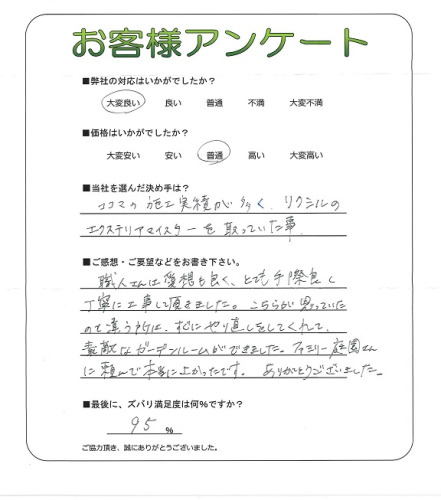 お客様アンケート
■弊社の対応はいかがでしたか?
大変良い 良い 普通 不満 大変不満
■価格はいかがでしたか?
大変安い 安い 普通 高い 大変高い
■当社を選んだ決め手は?
ココマの施工実績が多く、リクシルの
エクステリアマイスターを取っていた事。
■ご感想・ご要望などをお書き下さい。
職人さんは愛想も良く、とても手際良く
丁寧に工事して頂きました。こちらが思っていた
のと違う所は、すぐにやり直しをしてくれて、
素敵なガーデンルームができました。ファミリー庭園さん
に頼んで本当に良かったです。ありがとうございました。
■最後に、ズバリ満足度は何%ですか?
95 %
ご協力頂き、誠にありがとうございました。